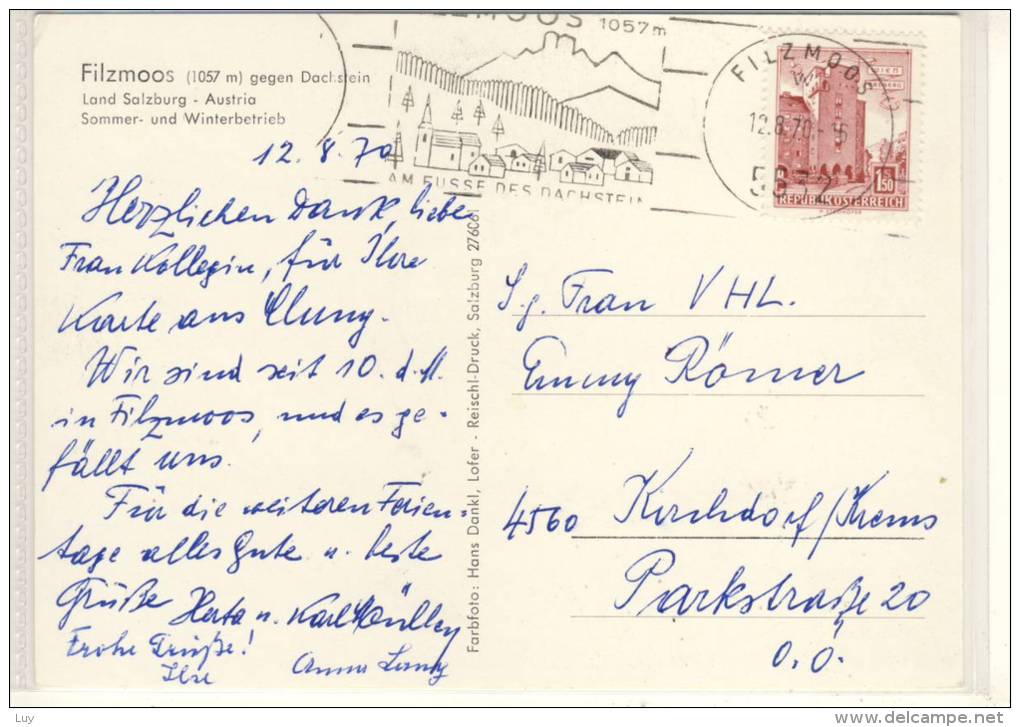 Filzmoos (1057 m) gegen Dachstein
Land Salzburg - Austria
Sommer- und Winterbetrieb
FILZMOOS 1057m
AM FUSSE DES DACHSTEIN
FILZMOOS
12.8.70-16
5532
WIEN
1.50
S
REPUBLIK ÖSTERREICH
12.8.70
Herzlichen Dank, liebe
Frau Kollegin, für Ihre
Karte aus Cluny.
Wir sind seit 10. d. M.
in Filzmoos, und es ge-
fällt uns.
Für die weiteren Ferien-
tage alles Gute u. beste
Grüße Herta u. Karl
Frohe Grüße!
Ilse Anna
Farbfoto: Hans Dankl, Lofer - Reischl-Druck, Salzburg 27606
S.g. Frau VHL.
Emmy Römer
4560 Kirchdorf/Krems
Parkstraße 20
O.Ö.
Luy
delcampe.net